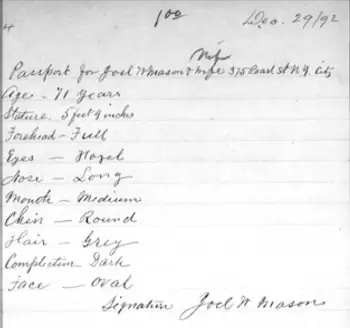 4
1 00
Dec. 29/92
Wife
Passport for Joel W Mason & Wife 375 Pearl St N.Y. City
Age - 71 Years
Stature. 5 feet 9 inches
Forehead - Full
Eyes - Hazel
Nose - Long
Mouth - Medium
Chin - Round
Hair - Grey
Complection Dark
Face - Oval
Signature Joel W Mason